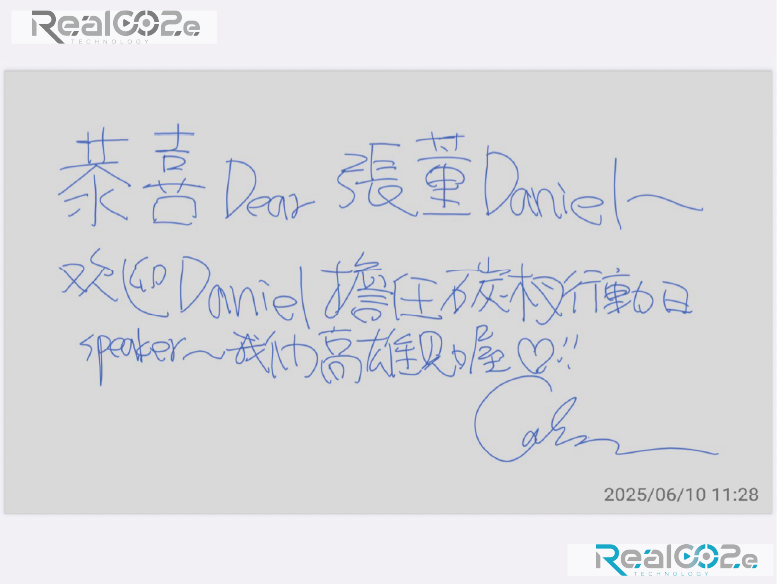 RealCO2e
TECHNOLOGY
恭喜 Dear 張董 Daniel~
欢迎 Daniel 擔任碳权行動日
speaker~我们高雄见喔♡!!
2025/06/10 11:28
RealCO2e
TECHNOLOGY